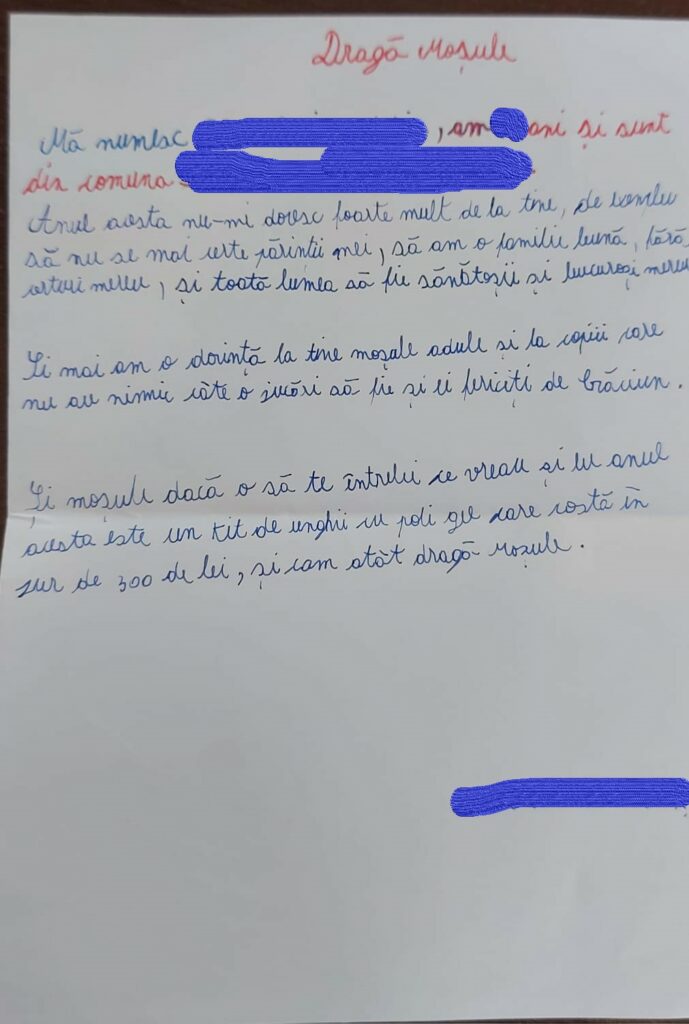 Dragă Moșule
Mă numesc , am ani și sunt
din comuna
Anul acesta nu-mi doresc foarte mult de la tine, de exmlu
să nu se mai certe părinții mei, să am o familie bună, fără
certuri mereu, și toată lumea să fie sănătoșii și bucuroși mereu
Și mai am o dorință la tine moșule adule și la copiii care
nu au nimic câte o jucări să fie și ei fericiți de Crăciun.
Și moșule dacă o să te întrebi ce vreau și eu anul
acesta este un kit de unghii cu poli gel care costă în
jur de 300 de lei, și cam atât dragă Moșule.